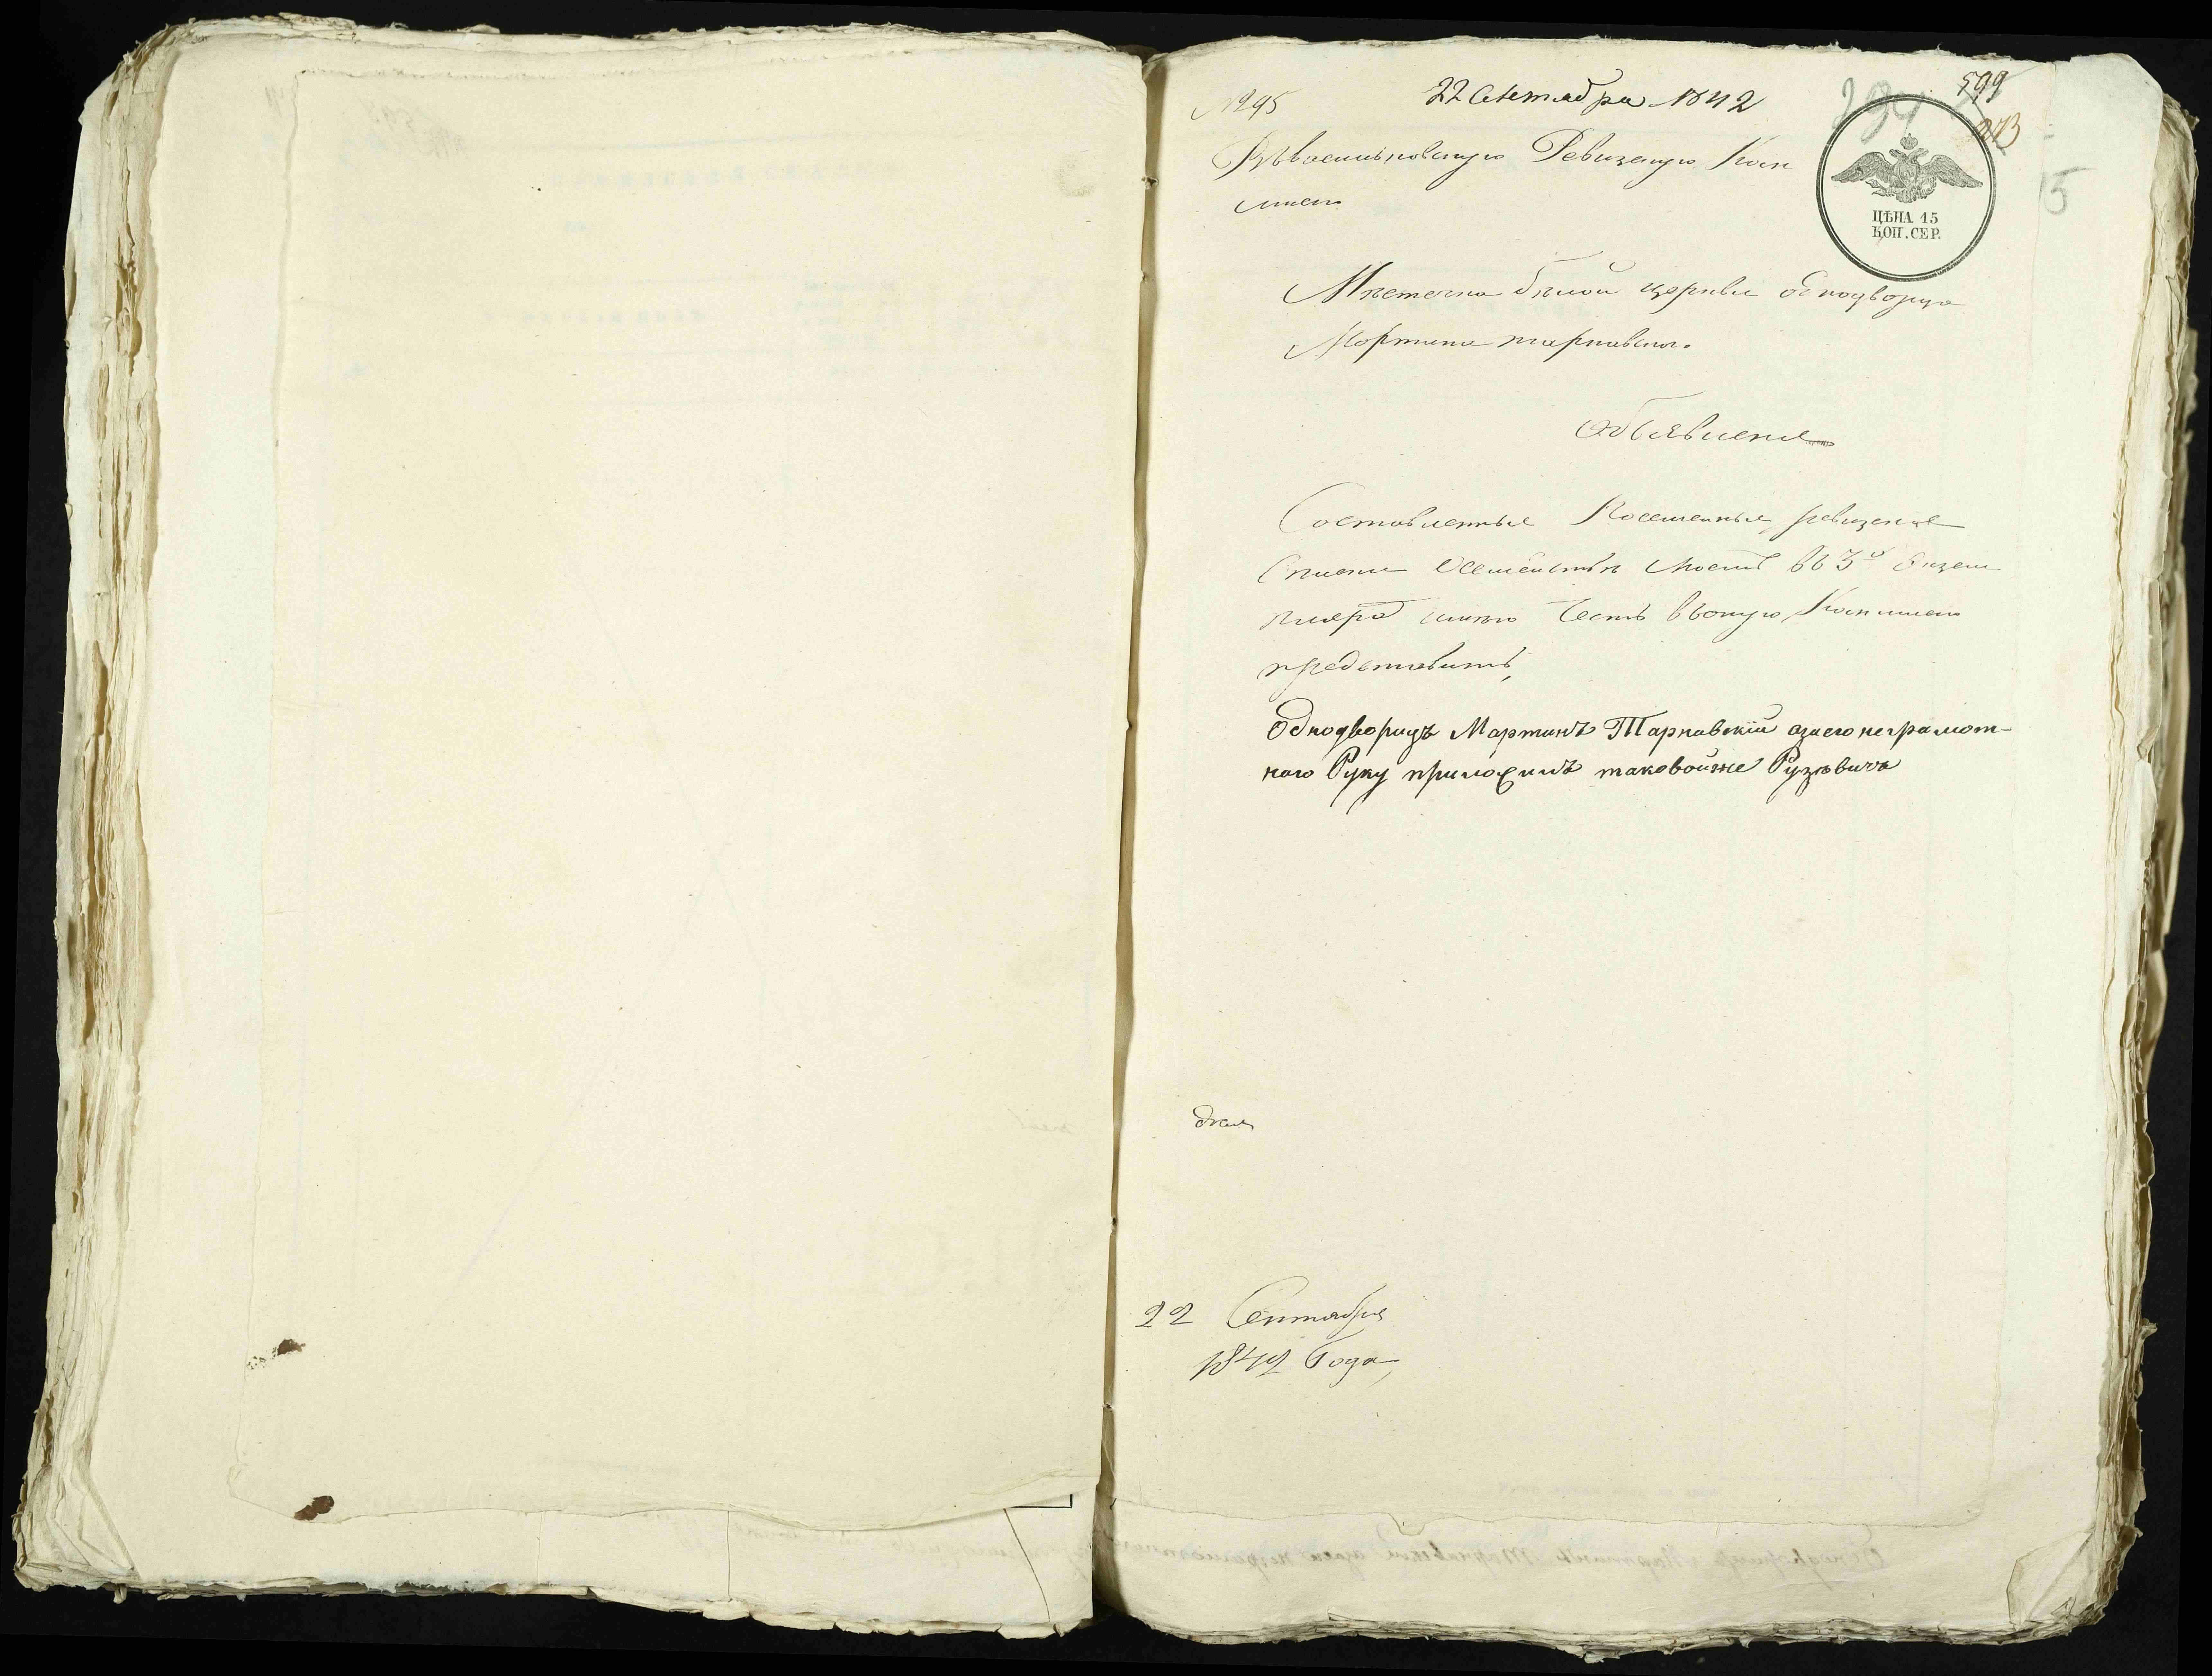 № 95
22 Сентабра 1842
599
273
Въ Васильковскую Ревизскую Ком
мисию
ЦѢНА 15
КОП. СЕР.
15
Мѣстечка белой церкви однодворца
Мартина тарнавского
Объявление
Составленные Посемейные ревизские
Списки Осемействе моемъ въ 3х экзем
плярах имею Честь въоную Коммисию
представить,
Однодворицъ Мартинъ Тарнавскій азаего неграмот-
наго Руку приложилъ таковойже Рузѣвичъ
дня
22 Сентября
1842 Года,